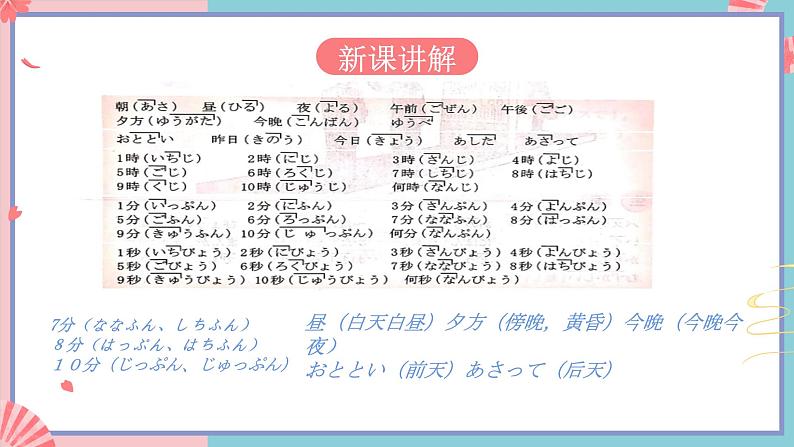 新课讲解
朝(あさ) 昼(ひる) 夜(よる) 午前(ごぜん) 午後(ごご)
夕方(ゆうがた) 今晩(こんばん) ゆうべ
おととい 昨日(きのう) 今日(きょう) あした あさって
1時(いちじ) 2時(にじ) 3時(さんじ) 4時(よじ)
5時(ごじ) 6時(ろくじ) 7時(しちじ) 8時(はちじ)
9時(くじ) 10時(じゅうじ) 何時(なんじ)
1分(いっぷん) 2分(にふん) 3分(さんぷん) 4分(よんぷん)
5分(ごふん) 6分(ろっぷん) 7分(ななふん) 8分(はっぷん)
9分(きゅうふん) 10分(じゅっぷん) 何分(なんぷん)
1秒(いちびょう) 2秒(にびょう) 3秒(さんびょう) 4秒(よんびょう)
5秒(ごびょう) 6秒(ろくびょう) 7秒(ななびょう) 8秒(はちびょう)
9秒(きゅうびょう) 10秒(じゅうびょう) 何秒(なんびょう)
7分（ななふん、しちふん）
８分（はっぷん、はちふん）
１０分（じっぷん、じゅっぷん）
昼（白天白昼）夕方（傍晚，黄昏）今晩（今晚今
夜）
おととい（前天）あさって（后天）